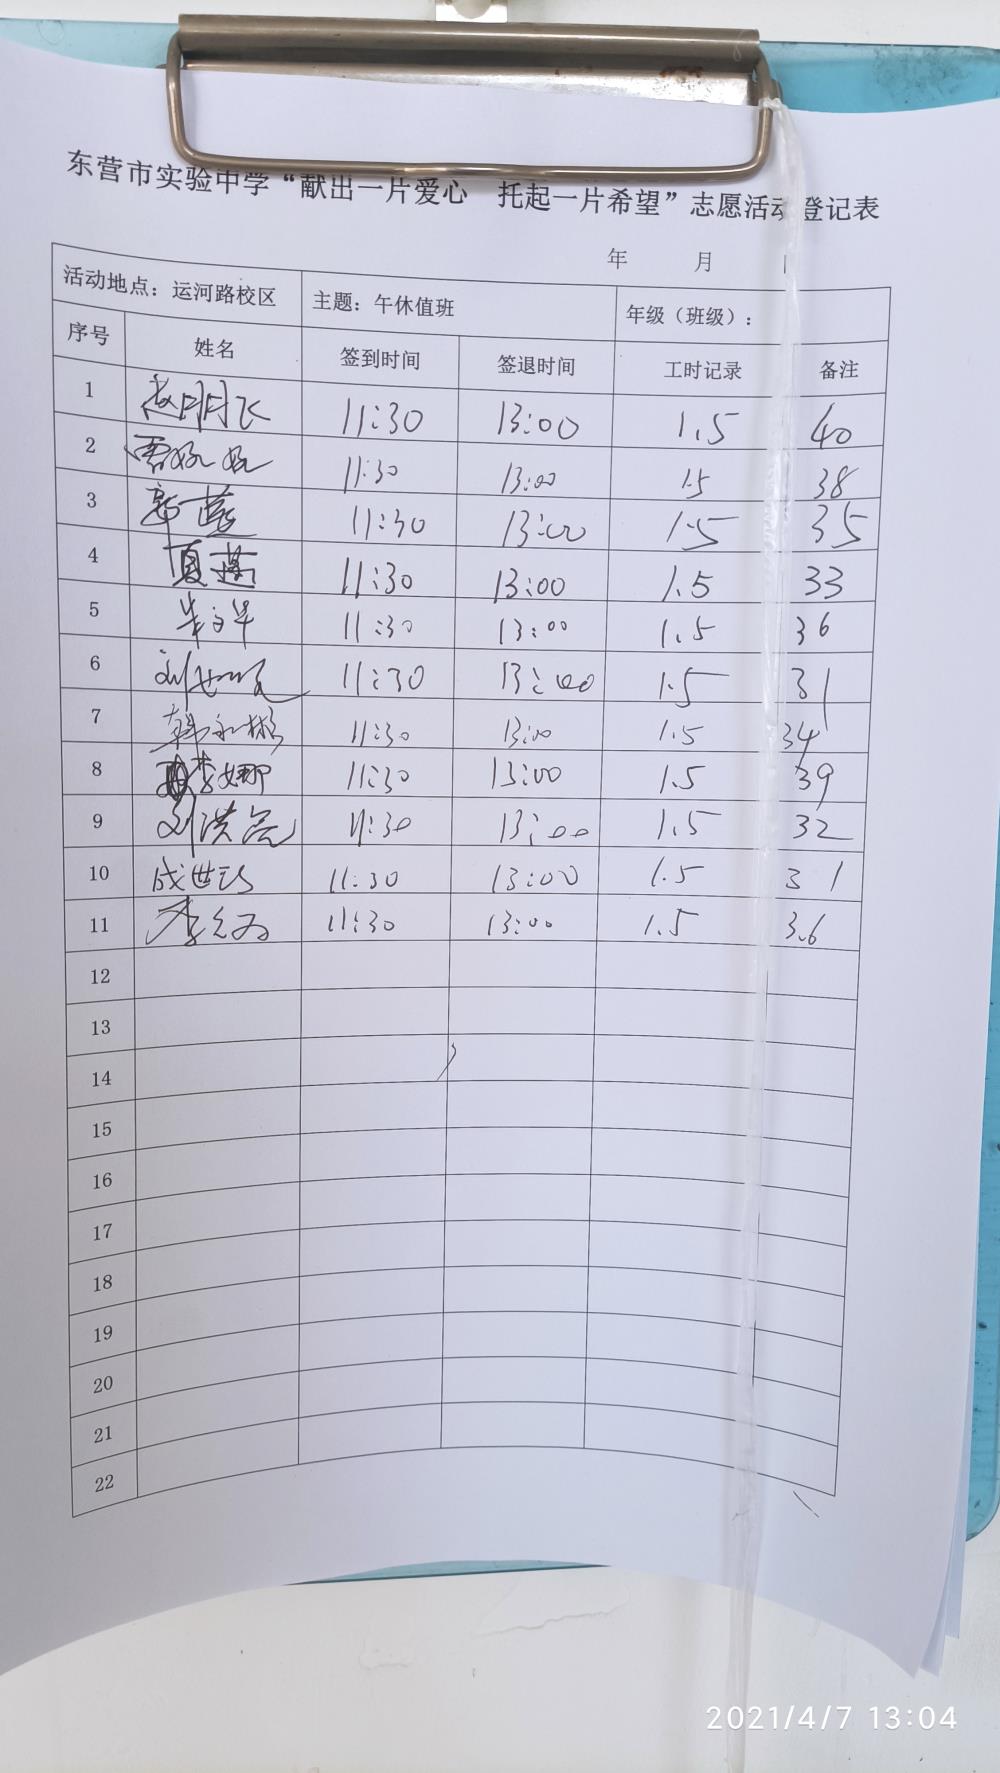 东营市实验中学“献出一片爱心 托起一片希望”志愿活动登记表
年 月
活动地点：运河路校区 主题：午休值班 年级（班级）：
序号 姓名 签到时间 签退时间 工时记录 备注
1 赵明飞 11:30 13:00 1.5 40
2 11:30 13:00 1.5 38
3 11:30 13:00 1.5 35
4 夏 11:30 13:00 1.5 33
5 11:30 13:00 1.5 36
6 刘 11:30 13:00 1.5 31
7 韩 11:30 13:00 1.5 34
8 李娜 11:30 13:00 1.5 39
9 刘洪亮 11:30 13:00 1.5 32
10 成世 11:30 13:00 1.5 31
11 李 11:30 13:00 1.5 3.6
12
13
14
15
16
17
18
19
20
21
22
2021/4/7 13:04